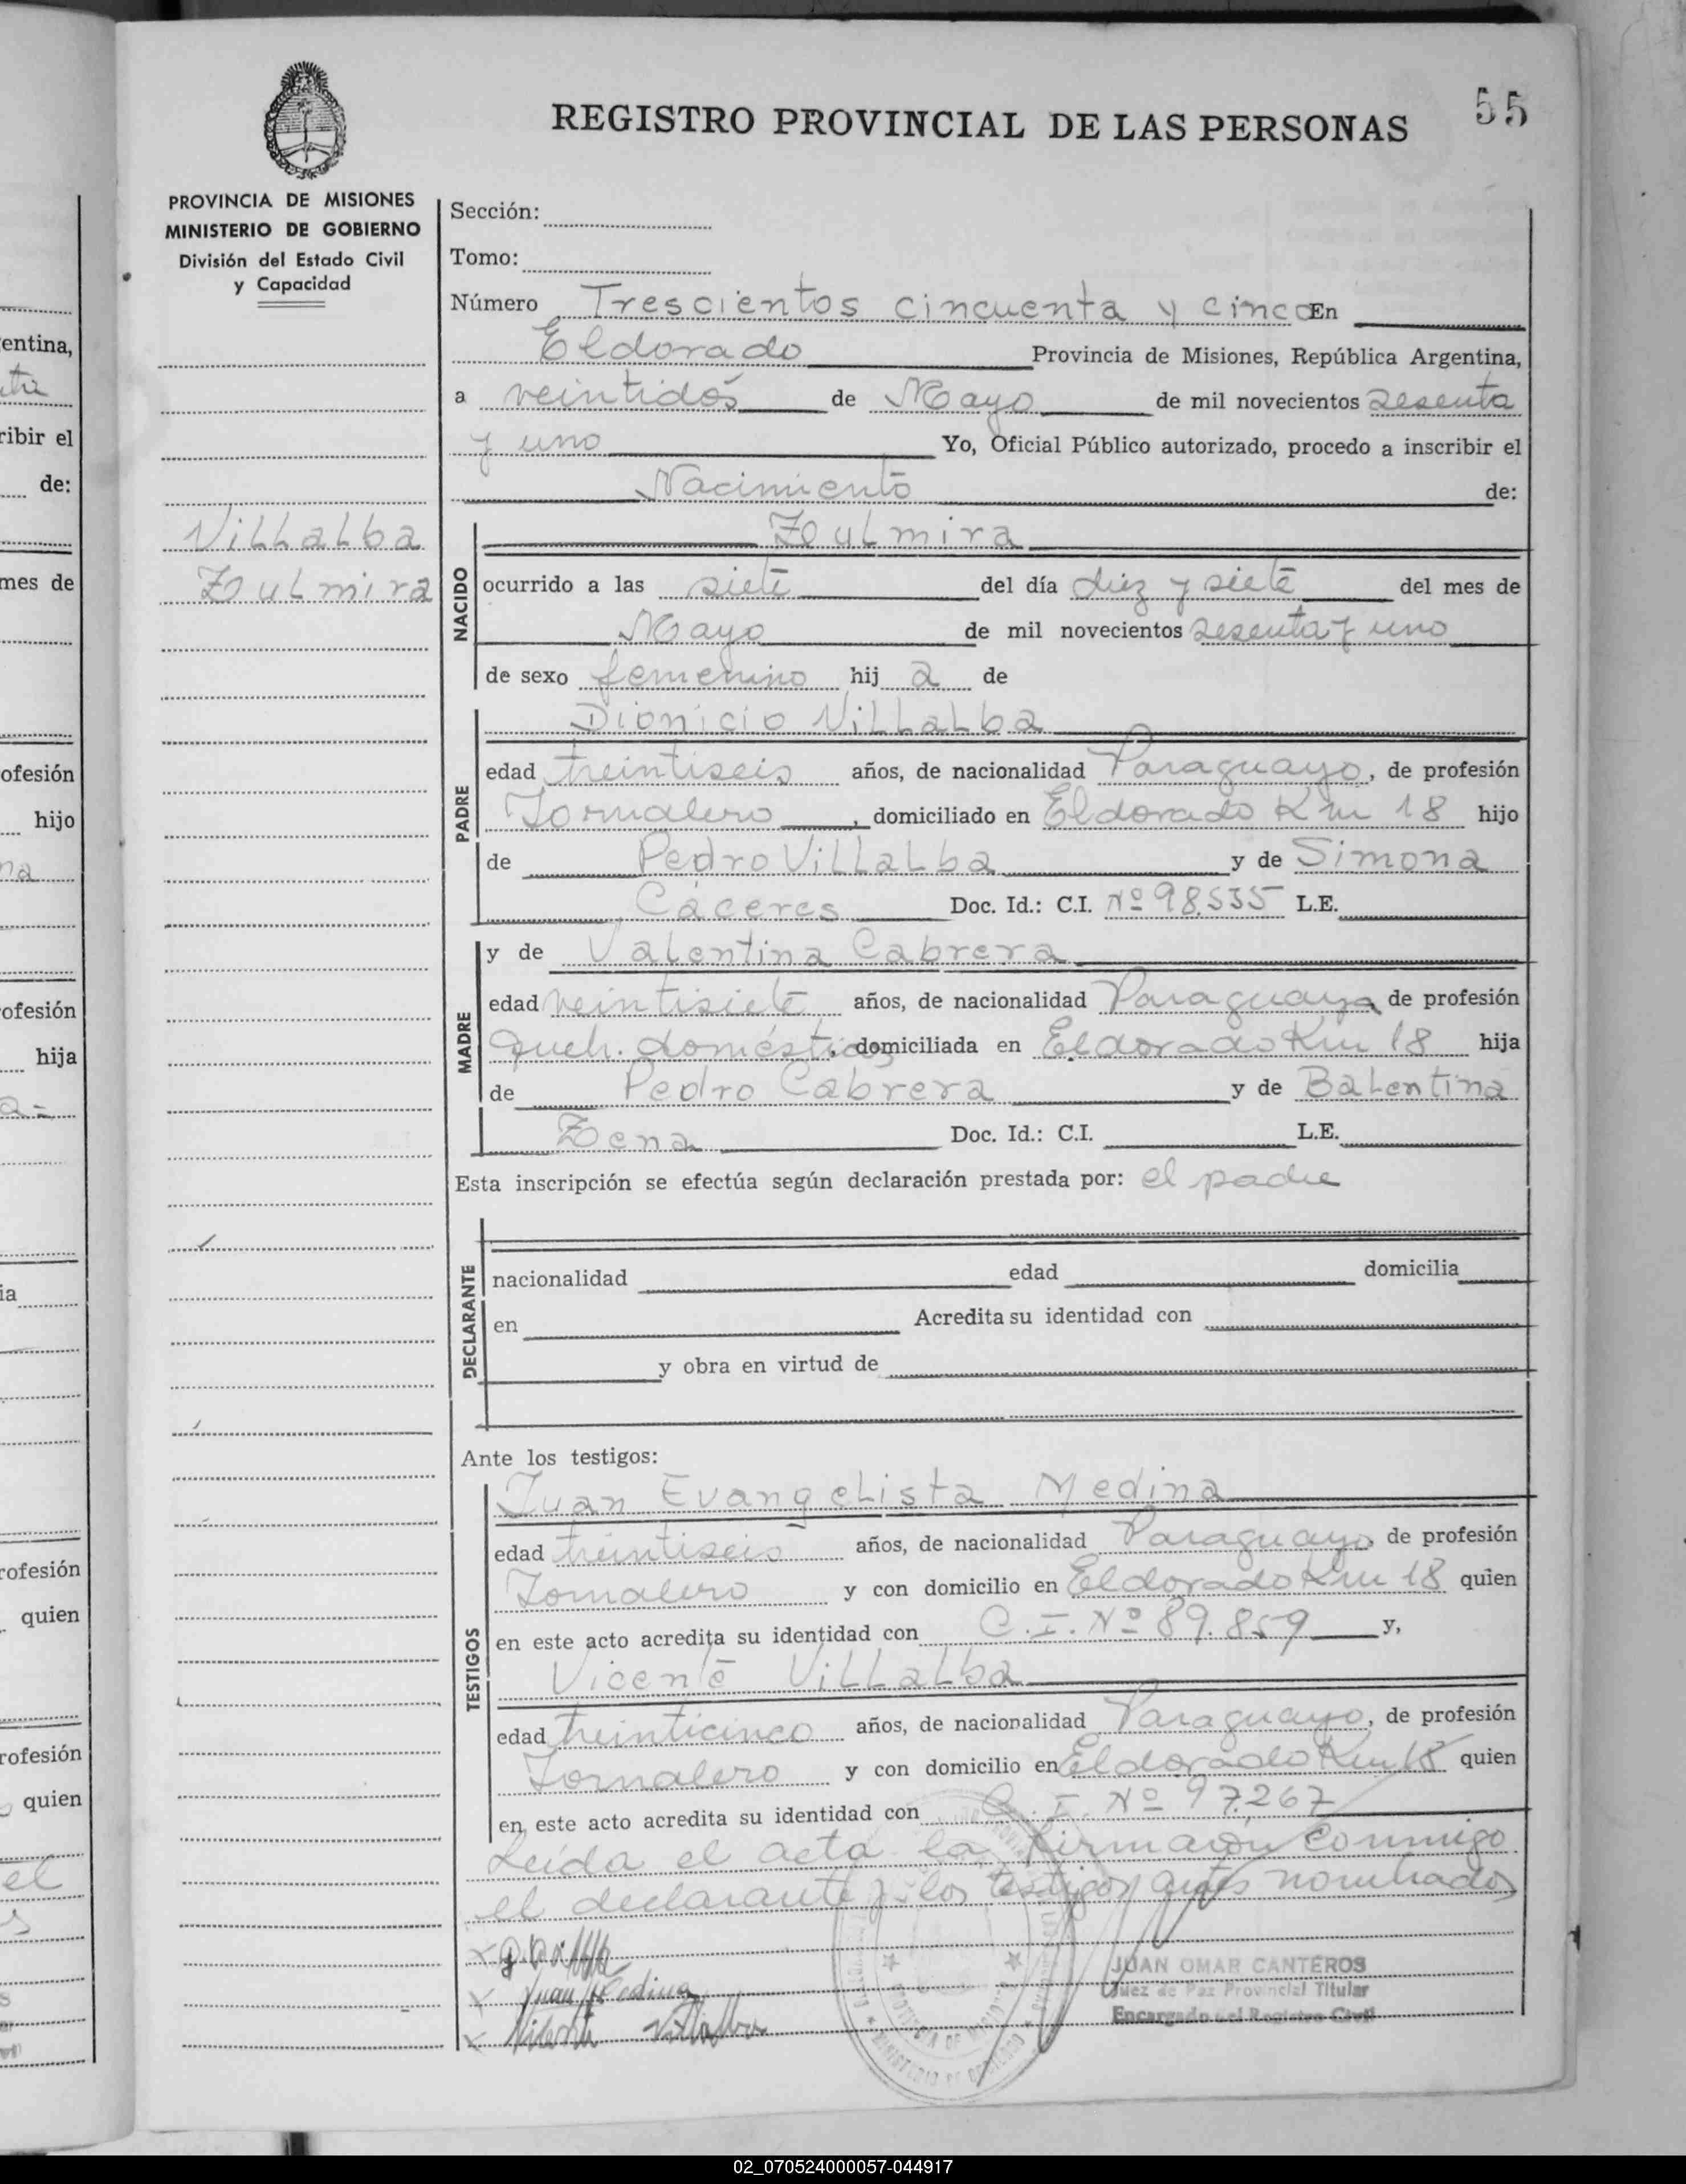 55
REGISTRO PROVINCIAL DE LAS PERSONAS
PROVINCIA DE MISIONES
MINISTERIO DE GOBIERNO
División del Estado Civil
y Capacidad
Villalba
Zoulmira
Sección:
Tomo:
Número Trescientos cincuenta y cinco En
Eldorado Provincia de Misiones, República Argentina,
a veintidós de Mayo de mil novecientos sesenta
y uno Yo, Oficial Público autorizado, procedo a inscribir el
Nacimiento de:
NACIDO
Zoulmira
ocurrido a las siete del día diez y siete del mes de
Mayo de mil novecientos sesenta y uno
de sexo femenino hij a de
PADRE
Dionicio Villalba
edad treintiseis años, de nacionalidad Paraguayo, de profesión
Jornalero, domiciliado en Eldorado Km 18 hijo
de Pedro Villalba y de Simona
Cáceres Doc. Id.: C.I. Nº 98.535 L.E.
MADRE
y de Valentina Cabrera
edad veintisiete años, de nacionalidad Paraguaya de profesión
Queh. domésticos, domiciliada en Eldorado Km 18 hija
de Pedro Cabrera y de Balentina
Zena Doc. Id.: C.I. L.E.
Esta inscripción se efectúa según declaración prestada por: el padre
DECLARANTE
nacionalidad edad domicilia
en Acredita su identidad con
y obra en virtud de
Ante los testigos:
TESTIGOS
Juan Evangelista Medina
edad treintiseis años, de nacionalidad Paraguayo, de profesión
Jornalero y con domicilio en Eldorado Km 18 quien
en este acto acredita su identidad con C.I. Nº 89.859 y,
Vicente Villalba
edad treinticinco años, de nacionalidad Paraguayo, de profesión
Jornalero y con domicilio en Eldorado Km 18 quien
en este acto acredita su identidad con C.I. Nº 97.267
Leída el acta la firmaron conmigo
el declarante y los testigos antes nombrados
Juan Medina
Vicente Villalba
JUAN OMAR CANTEROS
Juez de Paz Provincial Titular
Encargado del Registro Civil
02_070524000057-044917